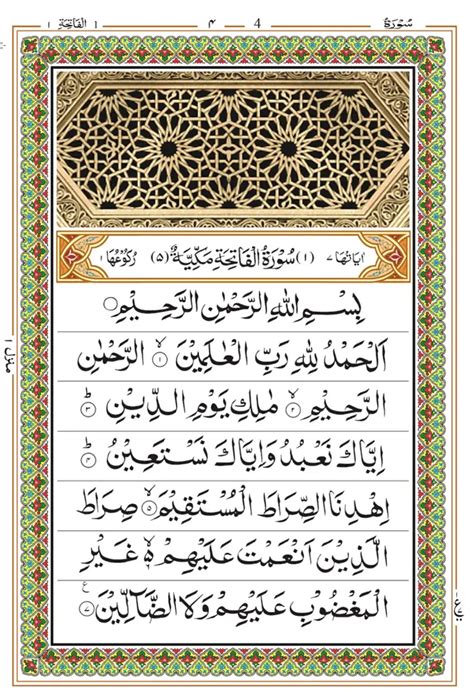 سُوْرَةُ ٤ - 4 اَلْفَاتِحَة ١
اٰيَاتُهَا ٧ (١) سُوْرَةُ الْفَاتِحَةِ مَكِّيَّةٌ (٥) رُكُوْعُهَا ١
بِسْمِ اللهِ الرَّحْمٰنِ الرَّحِيْمِ ○
اَلْحَمْدُ لِلّٰهِ رَبِّ الْعٰلَمِيْنَ ۙ ١ الرَّحْمٰنِ
الرَّحِيْمِ ۙ ٢ مٰلِكِ يَوْمِ الدِّيْنِ ؕ ٣
اِيَّاكَ نَعْبُدُ وَاِيَّاكَ نَسْتَعِيْنُ ؕ ٤
اِهْدِنَا الصِّرَاطَ الْمُسْتَقِيْمَ ۙ ٥ صِرَاطَ
الَّذِيْنَ اَنْعَمْتَ عَلَيْهِمْ ۙ ٦ غَيْرِ
الْمَغْضُوْبِ عَلَيْهِمْ وَلَا الضَّآلِّيْنَ ع ٧
منزل ١